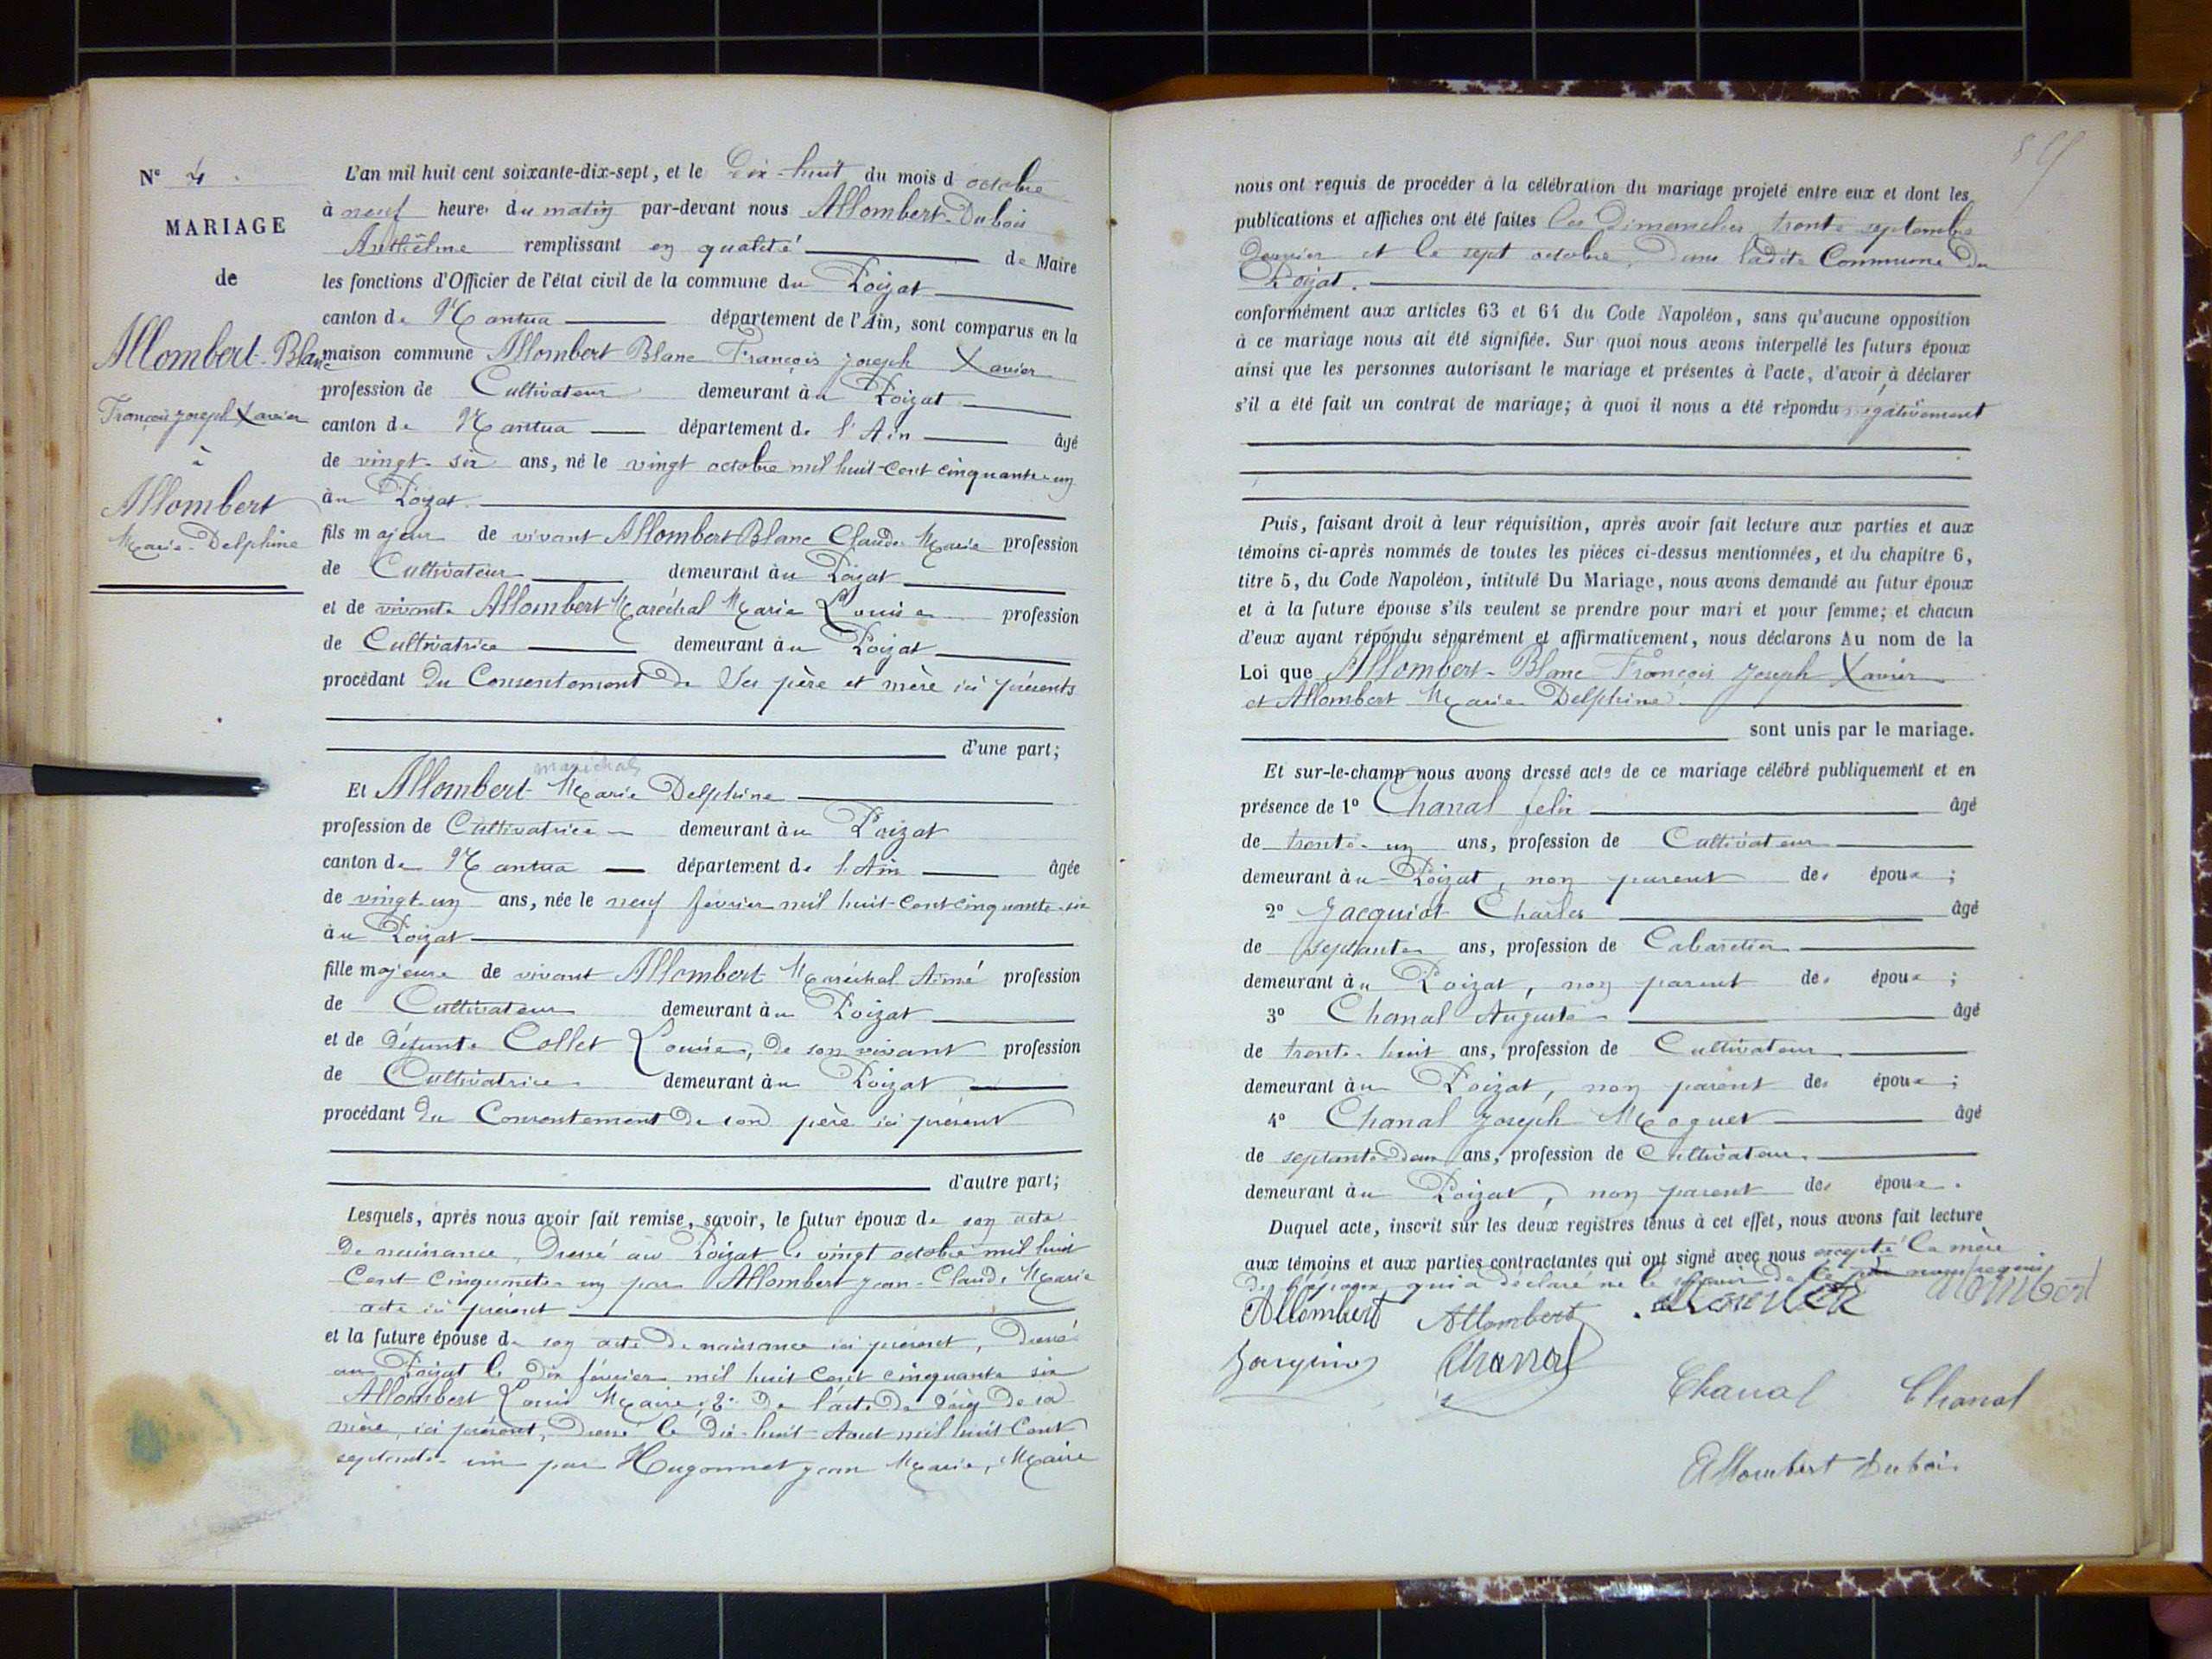 N° 4.
MARIAGE
de
Allombert-Blanc
François Joseph Xavier
à
Allombert
Marie-Delphine
L'an mil huit cent soixante-dix-sept, et le Dix-huit du mois d octobre
à neuf heures du matin par-devant nous Allombert-Dubois
Anthelme remplissant en qualité de Maire
les fonctions d'Officier de l'état civil de la commune du Poizat
canton de Nantua département de l'Ain, sont comparus en la
maison commune Allombert Blanc François Joseph Xavier
profession de Cultivateur demeurant àu Poizat
canton de Nantua département de l'Ain âgé
de vingt-six ans, né le vingt octobre mil huit-cent cinquante-un
àu Poizat
fils majeur de vivant Allombert Blanc Claude Marie profession
de Cultivateur demeurant àu Poizat
et de vivante Allombert Maréchal Marie Louise profession
de Cultivatrice demeurant àu Poizat
procédant du Consentement de Ses père et mère ici présents
d'une part;
maréchal
Et Allombert Marie Delphine
profession de Cultivatrice demeurant àu Poizat
canton de Nantua département de l'Ain âgée
de vingt-un ans, née le neuf février mil huit-cent cinquante-six
àu Poizat
fille majeure de vivant Allombert Maréchal Aimé profession
de Cultivateur demeurant àu Poizat
et de défunte Collet Louise, de son vivant profession
de Cultivatrice demeurant àu Poizat
procédant du Consentement de son père ici présent
d'autre part;
Lesquels, après nous avoir fait remise, savoir, le futur époux de son acte
de naissance, Dressé au Poizat le vingt octobre mil huit
Cent Cinquante-un par Allombert Jean-Claude Marie
acte ici présent
et la future épouse de son acte de naissance ici présent, Dressé
au Poizat le dix février mil huit cent cinquante six
Allombert Louis Maire; 2° De l'acte de décès de sa
mère, ici présent, Dressé le dix-huit Aout mil huit Cent
septante par Hugonnet Jean Marie, Maire
nous ont requis de procéder à la célébration du mariage projeté entre eux et dont les
publications et affiches ont été faites les Dimanches trente septembre
dernier et le sept octobre, Dans ladite Commune du
Poizat.
conformément aux articles 63 et 64 du Code Napoléon, sans qu'aucune opposition
à ce mariage nous ait été signifiée. Sur quoi nous avons interpellé les futurs époux
ainsi que les personnes autorisant le mariage et présentes à l'acte, d'avoir à déclarer
s'il a été fait un contrat de mariage; à quoi il nous a été répondu négativement
Puis, faisant droit à leur réquisition, après avoir fait lecture aux parties et aux
témoins ci-après nommés de toutes les pièces ci-dessus mentionnées, et du chapitre 6,
titre 5, du Code Napoléon, intitulé Du Mariage, nous avons demandé au futur époux
et à la future épouse s'ils veulent se prendre pour mari et pour femme; et chacun
d'eux ayant répondu séparément et affirmativement, nous déclarons Au nom de la
Loi que Allombert-Blanc François Joseph Xavier
et Allombert Marie Delphine
sont unis par le mariage.
Et sur-le-champ nous avons dressé acte de ce mariage célébré publiquement et en
présence de 1° Chanal felix âgé
de trente-un ans, profession de Cultivateur
demeurant àu Poizat, non parent des époux;
2° Jacquiot Charles âgé
de septante ans, profession de Cabaretier
demeurant àu Poizat, non parent des époux;
3° Chanal Auguste âgé
de trente-huit ans, profession de Cultivateur
demeurant àu Poizat, non parent des époux;
4° Chanal Joseph Moguet âgé
de septante-deux ans, profession de Cultivateur
demeurant àu Poizat, non parent des époux.
Duquel acte, inscrit sur les deux registres tenus à cet effet, nous avons fait lecture
aux témoins et aux parties contractantes qui ont signé avec nous excepté la mère
de l'époux qui a déclaré ne le savoir de ce
Allombert Allombert alombert
Chanal
Chanal Chanal
Allombert Dubois